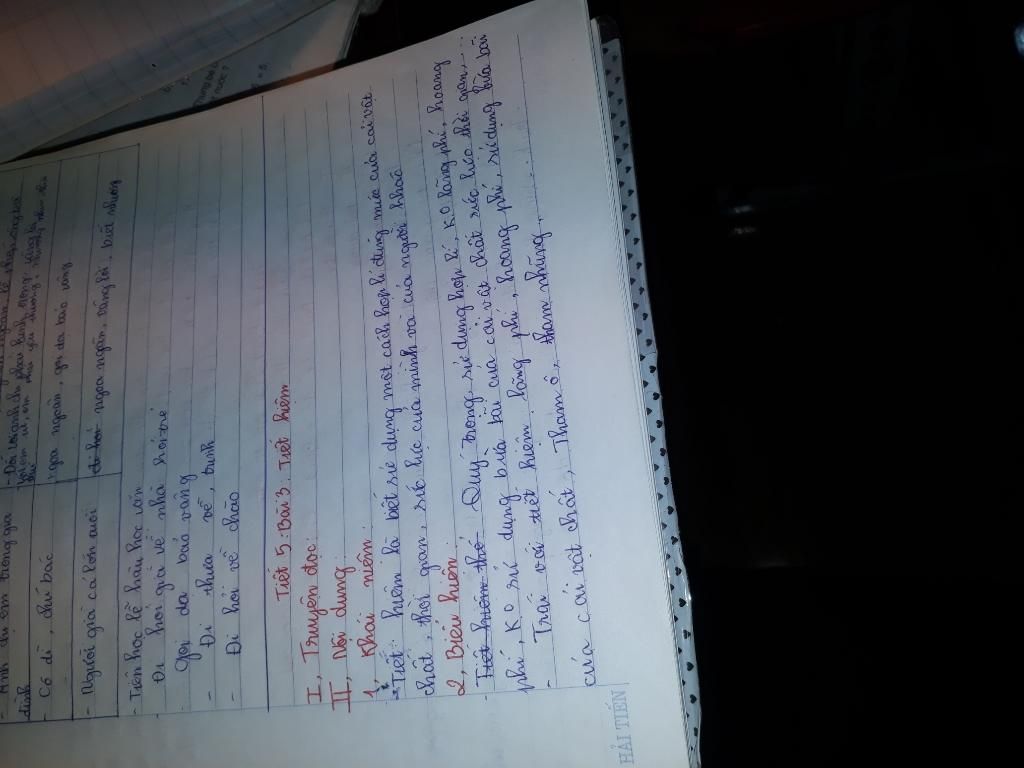 - Anh chị em trong gia đình
- Cô dì, chú bác
ngoan ngoãn, gọi dạ bảo vâng
- Người già cả lớn tuổi
ngoan ngoãn, vâng lời, biết nhường
- Tiên học lễ hậu học văn
- Đi hỏi già về nhà hỏi trẻ
- Gọi dạ bảo vâng
- Đi thưa về trình
- Đi hỏi về chào
Tiết 5: Bài 3: Tiết kiệm
I, Truyện đọc:
II, Nội dung:
1, Khái niệm:
- Tiết kiệm là biết sử dụng một cách hợp lí đúng mức của cải vật
chất, thời gian, sức lực của mình và của người khác
2, Biểu hiện:
- Tiết kiệm thể Quý trọng, sử dụng hợp lí, K0 lãng phí, hoang
phí, K0 sử dụng bừa bãi của cải vật chất sức lực thời gian,...
- Trái với tiết kiệm lãng phí, hoang phí, sử dụng bừa bãi
của cải vật chất, Tham ô, tham nhũng,
HẢI TIẾN